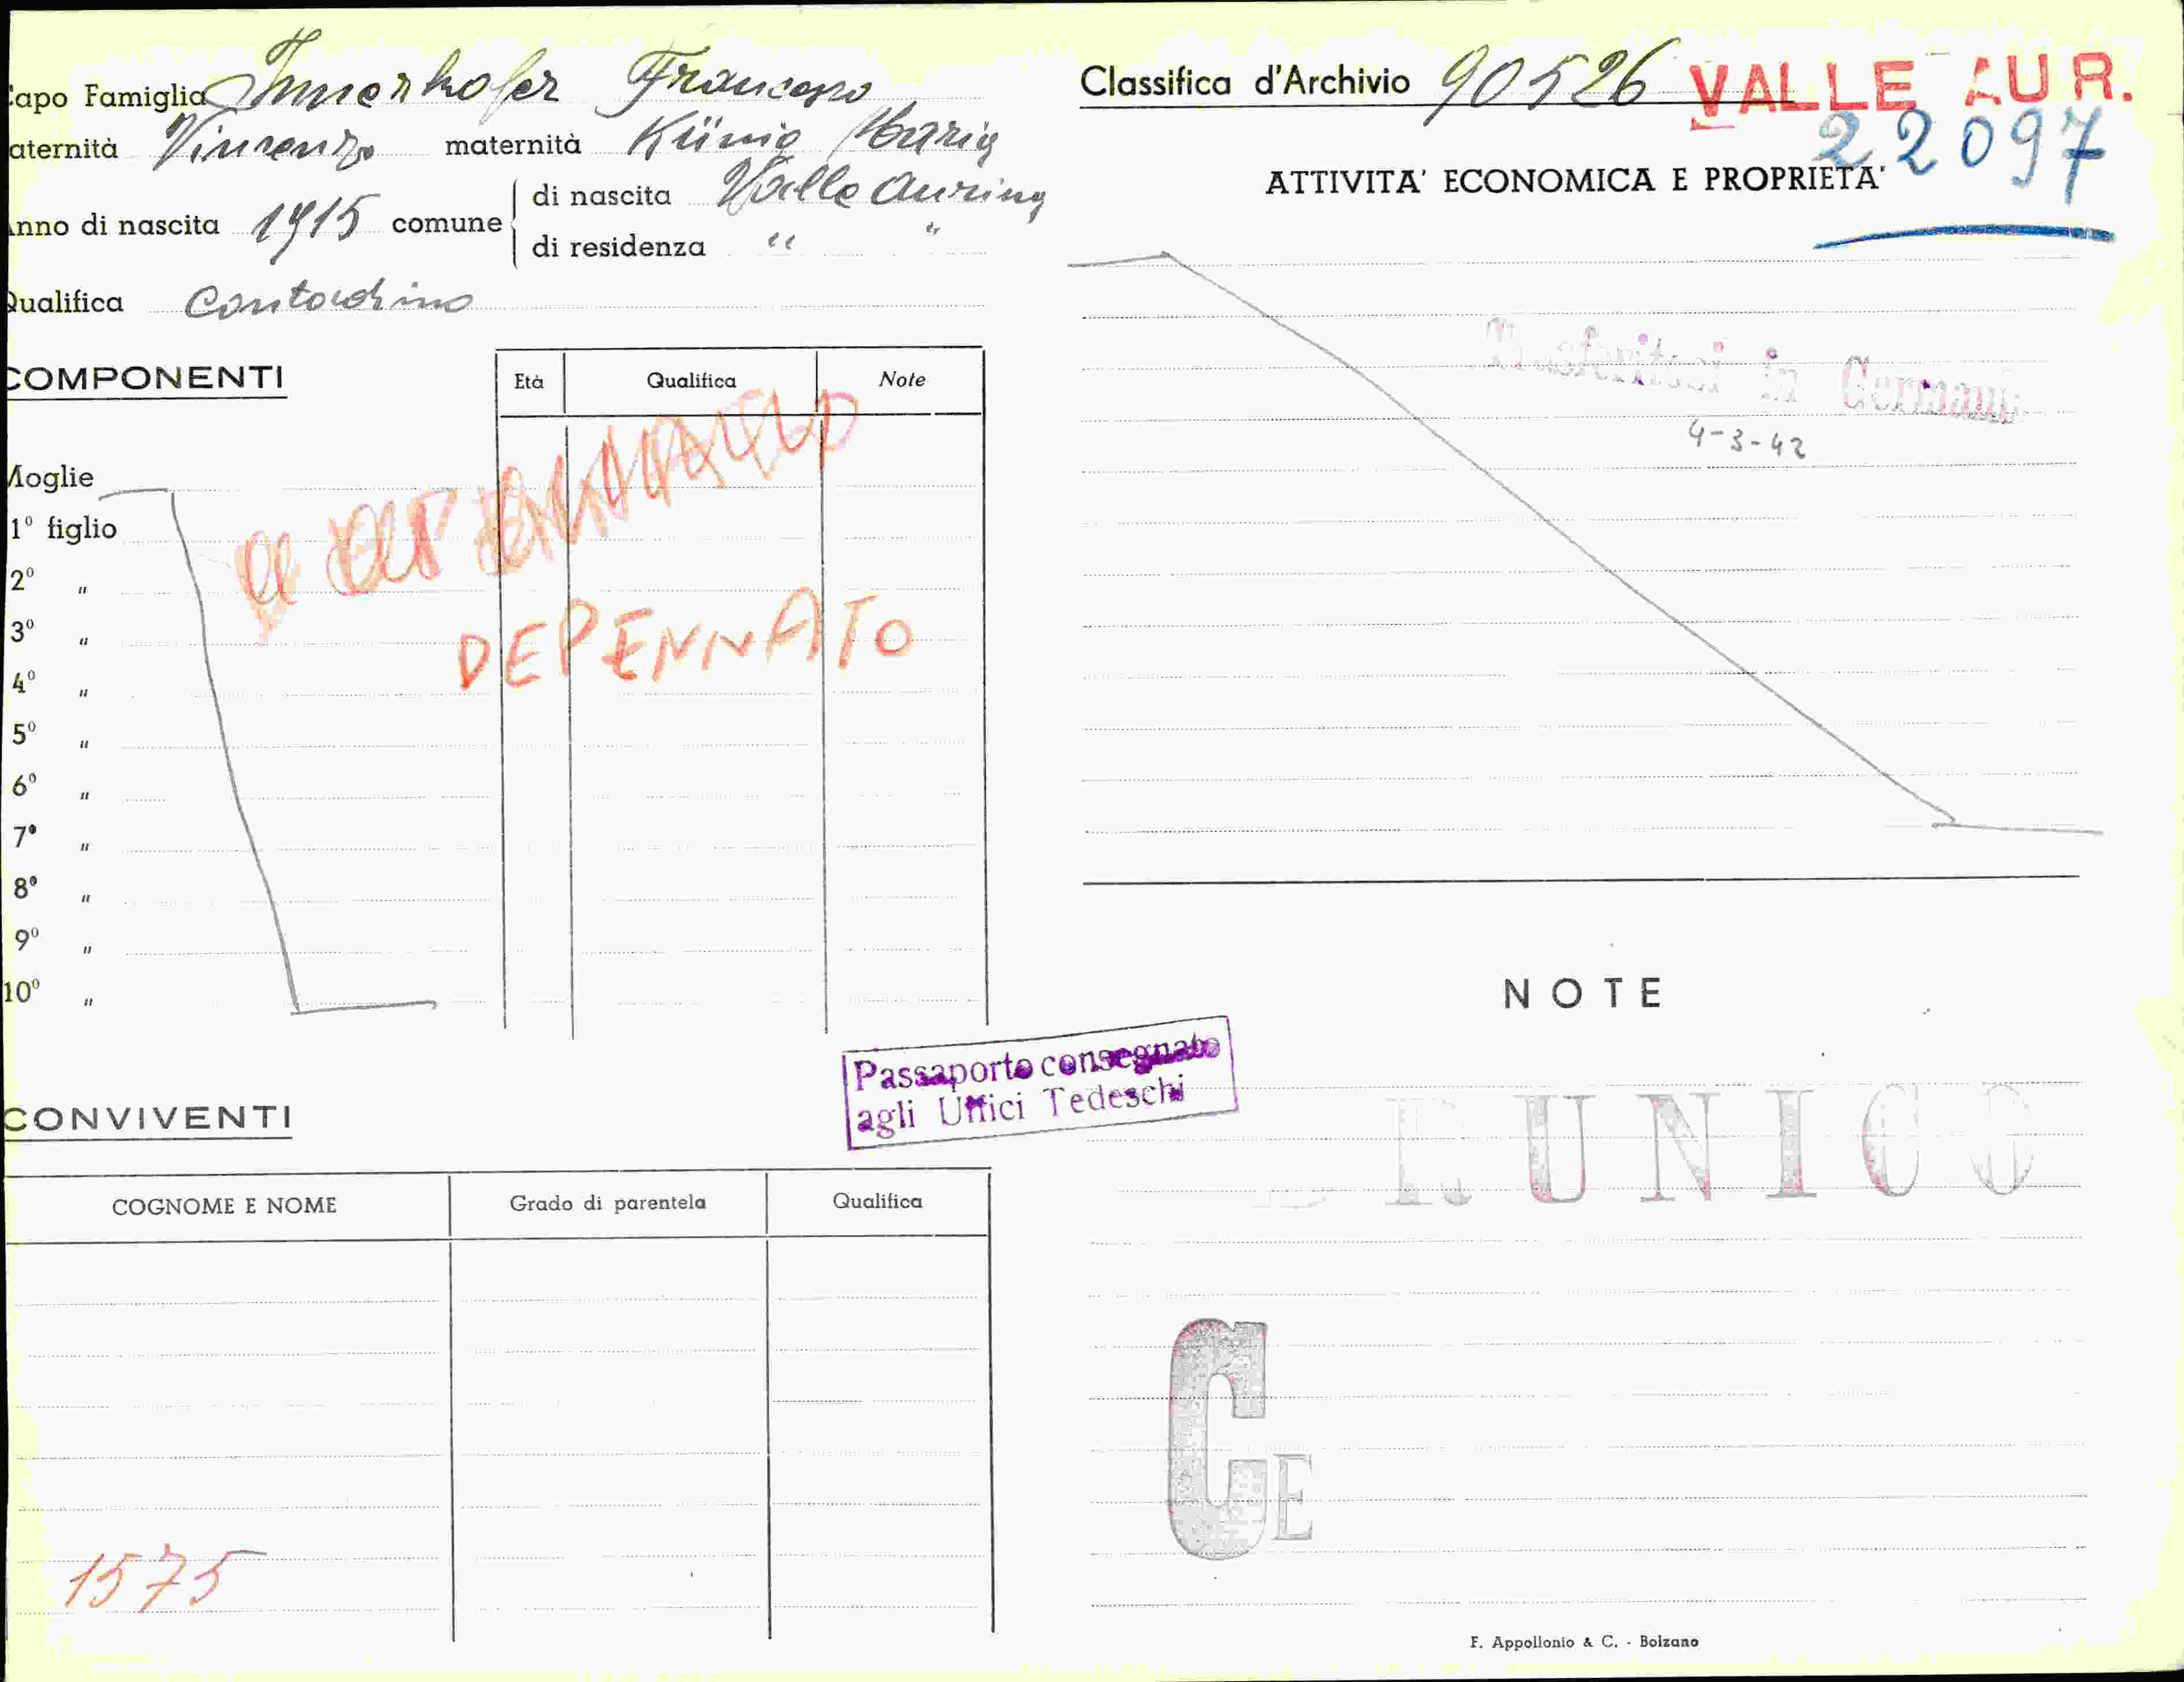 Capo Famiglia Innerhofer Francesco
Paternità Vincenzo maternità Künig Maria
Anno di nascita 1915 comune di nascita Valle Aurina
di residenza " "
Qualifica Contadino
COMPONENTI
Età Qualifica Note
Moglie
1° figlio
2° "
3° "
4° "
5° "
6° "
7° "
8° "
9° "
10° "
DEPENNATO
CONVIVENTI
COGNOME E NOME Grado di parentela Qualifica
1575
Passaporto consegnato
agli Uffici Tedeschi
Classifica d'Archivio 90526 VALLE AUR.
22097
ATTIVITA' ECONOMICA E PROPRIETA'
Trasferitosi in Germania
4-3-42
NOTE
BRUNICO
CE
F. Appollonio & C. - Bolzano